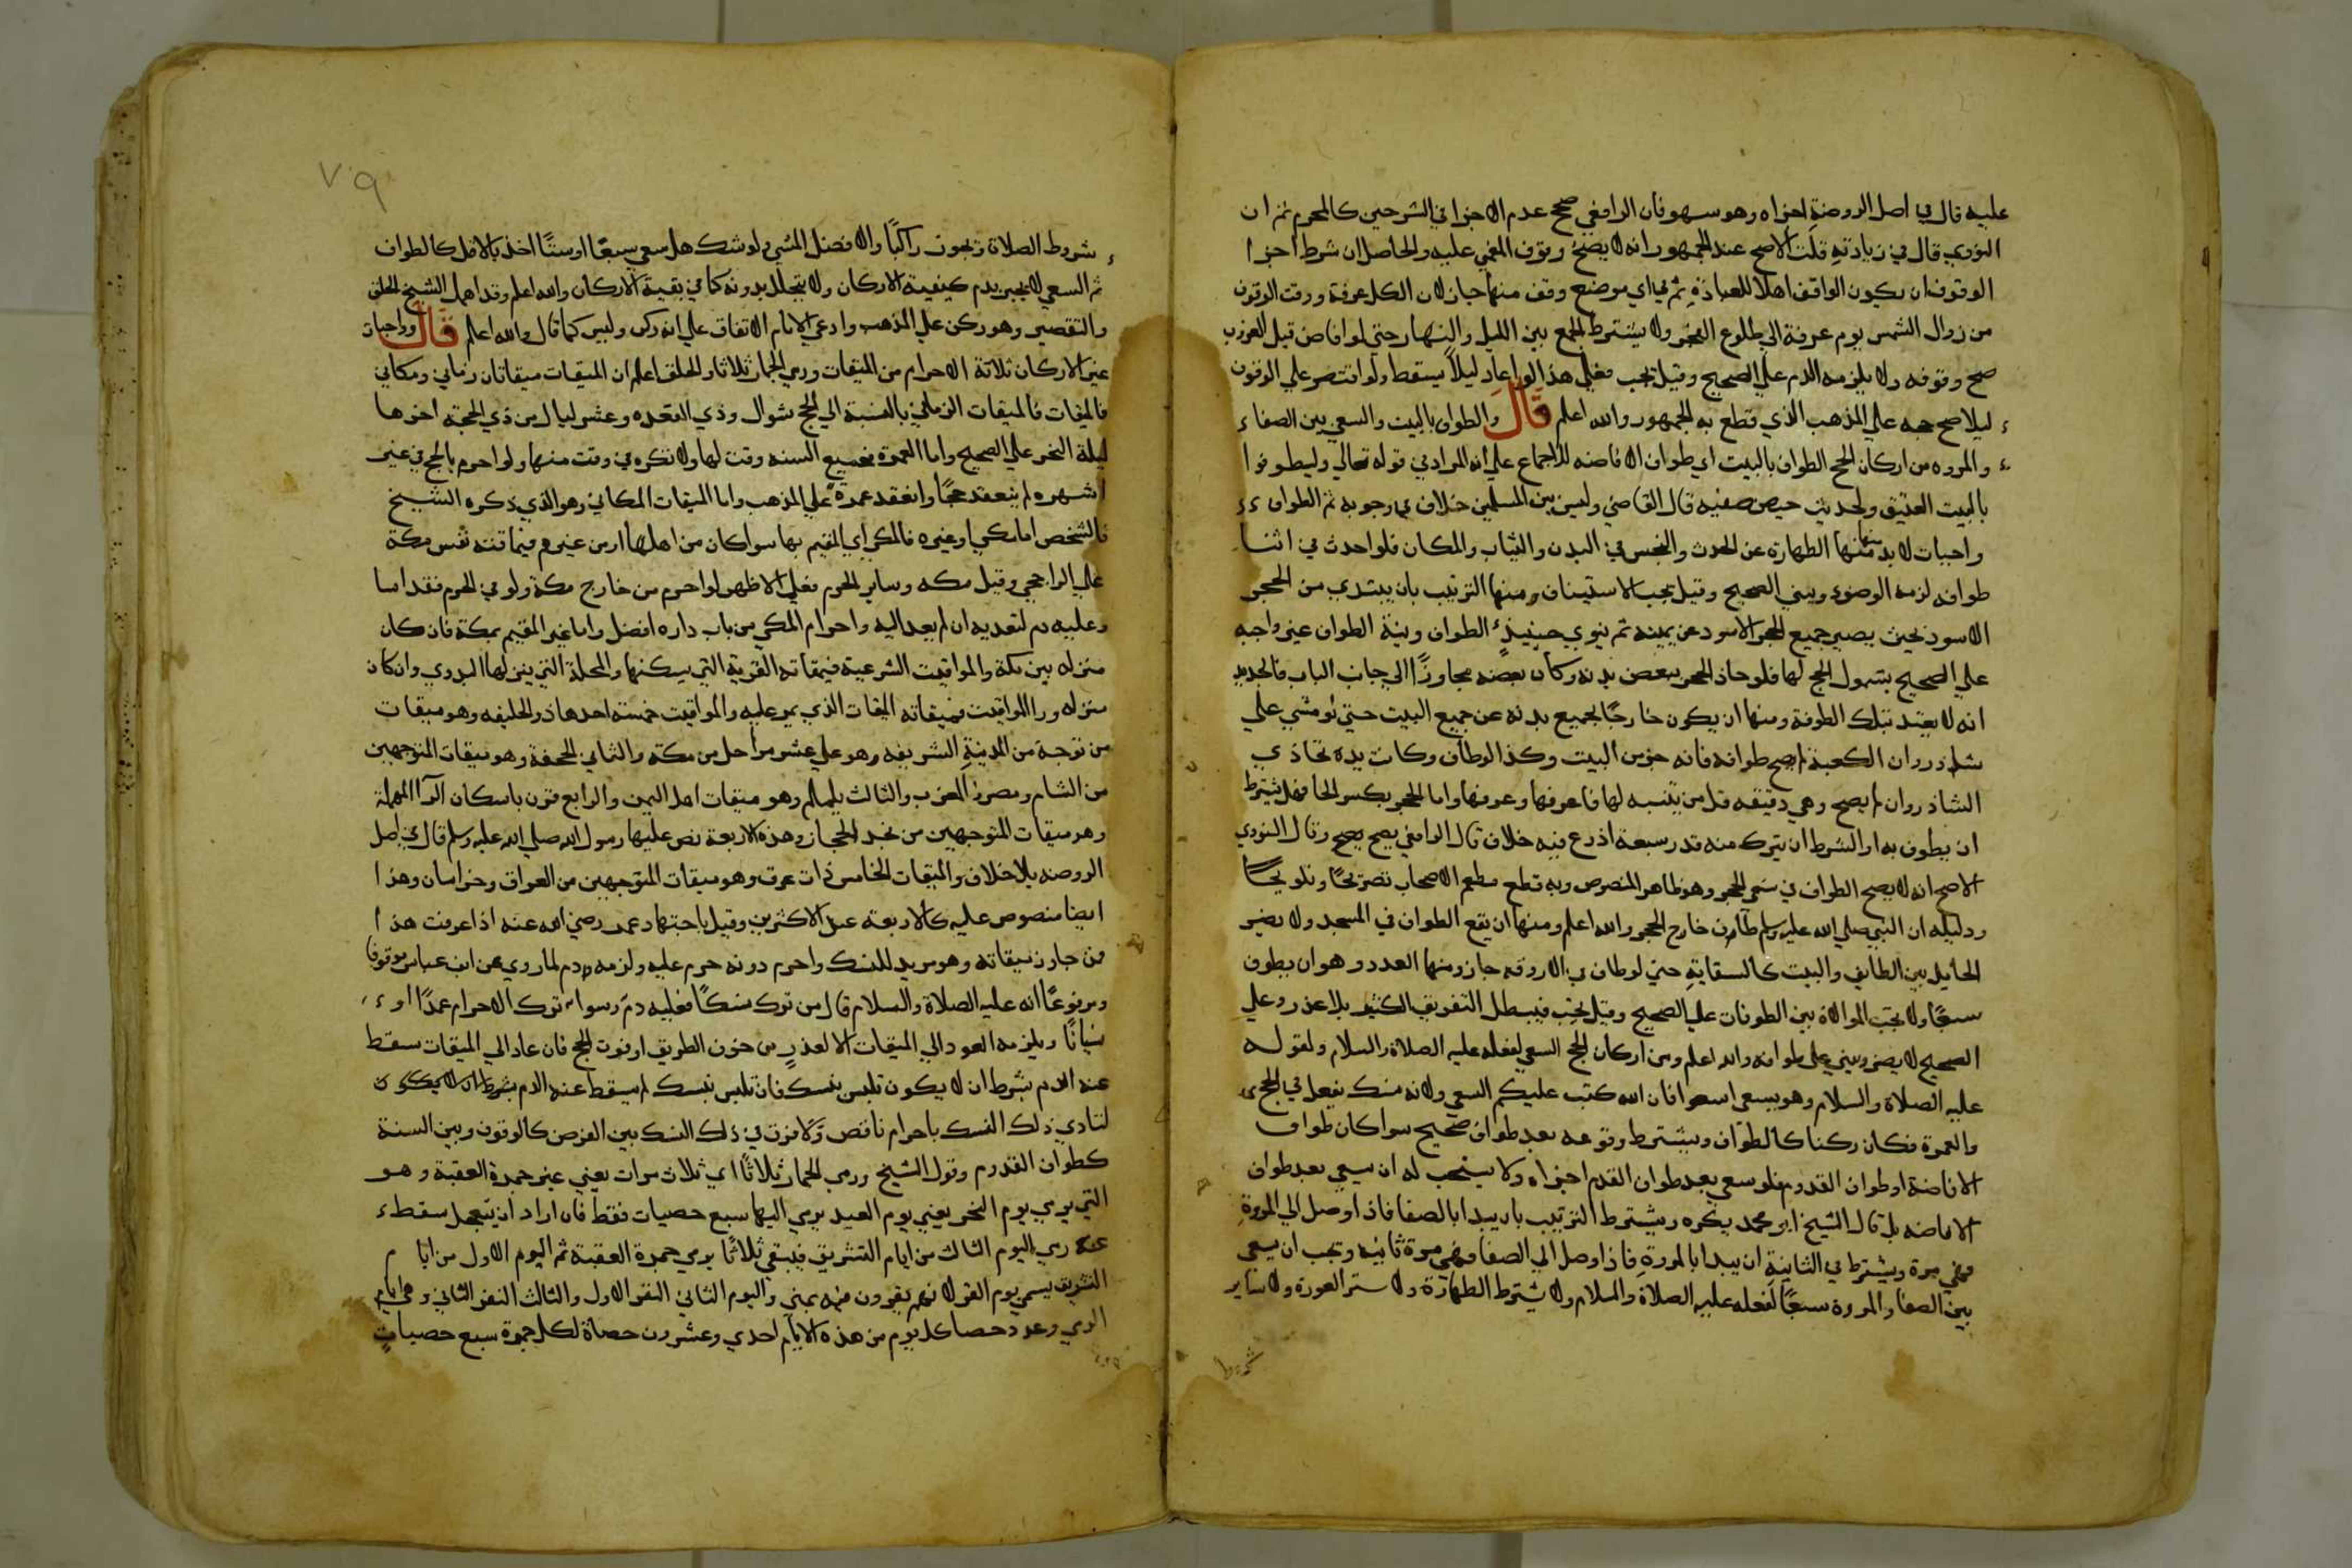 عليه قال في اصل الروضة اجزاه وهو سهو فان الرافعي صحح عدم الاجزا في الشرحين كالمحرم ثم ان
النووي قال في زيادته قلت الاصح عند الجمهور انه لا يصح وقوف المغمي عليه والحاصل ان شرط اجزا
الوقوف ان يكون الواقف اهلا للعبادة ثم في اي موضع وقف منها جاز لان الكل عرفة ووقت الوقوف
من زوال الشمس يوم عرفة الي طلوع الفجر ولا يشترط الجمع بين الليل والنهار حتي لو افاض قبل الغروب
صح وقوفه ولا يلزمه الدم علي الصحيح وقيل يجب فعلي هذا لو اعاد ليلا يسقط ولو اقتصر علي الوقوف
ليلا صح حجه علي المذهب الذي قطع به الجمهور والله اعلم قال والطواف بالبيت والسعي بين الصفا
والمروه من اركان الحج الطواف بالبيت اي طواف الافاضه للاجماع علي انه المراد في قوله تعالي وليطوفوا
بالبيت العتيق ولحديث حيض صفيه قال القاضي وليس بين المسلمين خلاف في وجوبه ثم الطواف
واجبات لا بد منها منها الطهارة عن الحدث والنجس في البدن والثياب والمكان فلو احدث في اثنا
طوافه لزمه الوضوء ويبني الصحيح وقيل يجب الاستيناف ومنها الترتيب بان يبتدي من الحجر
الاسود بحيث يصير جميع الحجر الاسود عن يمينه ثم ينوي حينيذ الطواف ونية الطواف غير واجبه
علي الصحيح بشمول الحج لها فلو حاذ الحجر ببعض بدنه وكان بعضه مجاوزا الي جانب الباب فالجديد
انه لا يعتد بتلك الطوفة ومنها ان يكون خارجا بجميع بدنه عن جميع البيت حتي لو مشي علي
شاذروان الكعبة لم يصح طوافه فانه جز من البيت وكذا لو طاف وكانت يده تحاذي
الشاذروان لم يصح وهي دقيقه قل من يتنبه لها فاعرفها وعرفها واما الحجر بكسر الحا فهل يشترط
ان يطوف به او الشرط ان يترك منه قدر سبعة اذرع فيه خلاف قال الرافعي يصح يصح وقال النووي
الاصح انه لا يصح الطواف في شي الحجر وهو ظاهر المنصوص وبه قطع معظم الاصحاب تصريحا وتلويحا
ودليله ان النبي صلي الله عليه وسلم طاف خارج الحجر والله اعلم ومنها ان يقع الطواف في المسجد ولا يضر
الحايل بين الطايف والبيت كالسقاية حتي لو طاف في الاروقه جاز ومنها العدد وهو ان يطوف
سبعا ولا تجب الموالاة بين الطوفات علي الصحيح وقيل تجب فيبطل التفريق الكثير بلا عذر وعلي
الصحيح لا يضر ويبني علي طوافه والله اعلم ومن اركان الحج السعي لفعله عليه الصلاة والسلام ولقوله
عليه الصلاة والسلام وهو يسعي اسعوا فان الله كتب عليكم السعي ولانه منسك يفعل في الحج
والعمرة فكان ركنا كالطواف ويشترط وقوعه بعد طواف صحيح سواكان طواف
الافاضة او طواف القدوم فلو سعي بعد طواف القدم اجزاه ولا يستحب له ان يسعي بعد طواف
الافاضه بل قال الشيخ ابو محمد يكره ويشترط الترتيب بان يبدا بالصفا فاذا وصل الي المروة
فهي مرة ويشترط في الثانية ان يبدا بالمروة فاذا وصل الي الصفا فهي مرة ثانيه ويجب ان يسعي
بين الصفا والمروة سبعا لفعله عليه الصلاة والسلام ولا يشترط الطهارة ولا ستر العورة ولا ساير
شروط
٧٠٩
شروط الصلاة ويجوز راكبا والافضل المشي ولو شك هل سعي سبعا او ستا اخذ بالاقل كالطواف
ثم السعي لا يجبر بدم كبقية الاركان ولا يتحلل بدونه كما في بقية الاركان والله اعلم وقد اهمل الشيخ الحلق
والتقصير وهو ركن علي المذهب وادعي الامام الاتفاق علي انه ركن وليس كما قال والله اعلم قال وواجبات
غير الاركان ثلاثة الاحرام من الميقات ورمي الجمار ثلاثا والحلق اعلم ان الميقات ميقاتان زماني ومكاني
فالميقات فالميقات الزماني بالنسبة الي الحج شوال وذي القعده وعشر ليال من ذي الحجة اخرها
ليلة النحر علي الصحيح واما العمرة فجميع السنه وقت لها ولا تكره في وقت منها ولو احرم بالحج في غير
اشهره لم ينعقد حجا وانعقد عمرة علي المذهب واما الميقات المكاني وهو الذي ذكره الشيخ
فالشخص اما مكي او غيره فالمكي اي المقيم بها سواكان من اهلها او من غيرهم فيقاته نفس مكة
علي الراجحي وقيل مكه وساير الحرم فعلي الاظهر لو احرم من خارج مكة ولو في الحرم فقد اسا
وعليه دم لتعديه ان لم يعد اليه واحرام المكي من باب داره افضل واما غير المقيم بمكة فان كان
منزله بين مكة والمواقيت الشرعية فيقاته القرية التي يسكنها والمحلة التي ينزلها البدوي وان كان
منزله ورا المواقيت فميقاته الميقات الذي يمر عليه والمواقيت خمسة احدها ذو الحليفه وهو ميقات
من توجه من المدينة الشريفه وهو علي عشر مراحل من مكة والثاني الجحفة وهو ميقات المتوجهين
من الشام ومصر والمغرب والثالث يلملم وهو ميقات اهل اليمن والرابع قرن باسكان الرا المهملة
وهو ميقات المتوجهين من نجد الحجاز وهذه الاربعة نص عليها رسول الله صلي الله عليه وسلم قال في اصل
الروضه بلا خلاف والميقات الخامس ذات عرق وهو ميقات المتوجهين من العراق وخراسان وهذا
ايضا منصوص عليه كالاربعة عند الاكثرين وقيل باجتهاد عمر رضي الله عنه اذا عرفت هذا
فمن جاوز ميقاته وهو مريد للنسك واحرم دونه حرم عليه ولزمه دم لما روي عن ابن عباس موقوفا
ومرفوعا انه عليه الصلاة والسلام قال من ترك نسكا فعليه دم وسواء ترك الاحرام عمدا او
نسيانا ويلزمه العود الي الميقات الا لعذر من خوف الطريق او فوت الحج فان عاد الي الميقات سقط
عنه الدم بشرط ان لا يكون تلبس بنسك فان تلبس بنسك لم يسقط عنه الدم بشرط ان لا يكون
لتادي ذلك النسك باحرام ناقص ولا فرق في ذلك النسك بين الفرض كالوقوف وبين السنة
كطواف القدوم وقول الشيخ ورمي الجمار ثلاثا اي ثلاث مرات يعني غير جمرة العقبة وهو
التي يرمي يوم النحر يعني يوم العيد يرمي اليها سبع حصيات فقط فان اراد ان يتعجل سقط
عنه رمي اليوم الثالث من ايام التشريق فيبقي ثلاثا يرمي جمرة العقبة ثم اليوم الاول من ايام
التشريق يسمي يوم القر لانهم يقرون فيه بمني واليوم الثاني النفر الاول والثالث النفر الثاني وهي ايام
الرمي وعدد حصا كل يوم من هذه الايام احدي وعشرون حصاة لكل جمرة سبع حصيات